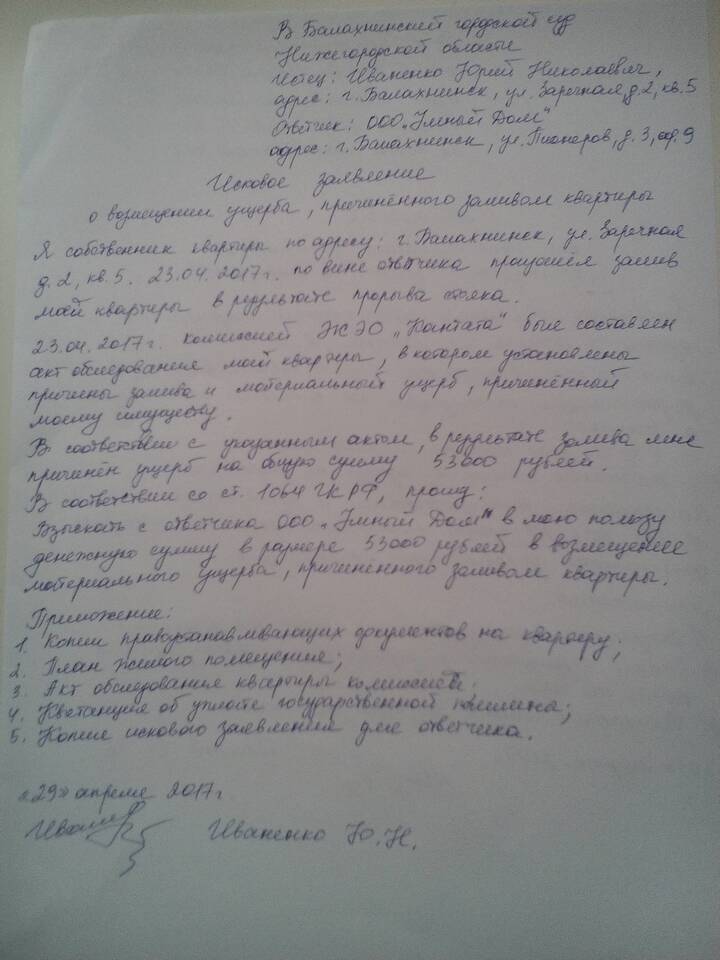 В Балахнинский городской суд
Нижегородской области
Истец: Иваненко Юрий Николаевич,
адрес: г. Балахнинск, ул. Заречная, д. 2, кв. 5
Ответчик: ООО „Умный Дом"
адрес: г. Балахнинск, ул. Пионеров, д. 3, оф. 9
Исковое заявление
о возмещении ущерба, причинённого заливом квартиры
Я собственник квартиры по адресу: г. Балахнинск, ул. Заречная
д. 2, кв. 5. 23.04.2017г. по вине ответчика произошёл залив
моей квартиры в результате прорыва стояка.
23.04.2017г. комиссией ЖЭО „Кантата" был составлен
акт обследования моей квартиры, в котором установлены
причины залива и материальный ущерб, причинённый
моему имуществу.
В соответствии с указанным актом, в результате залива мне
причинён ущерб на общую сумму 53000 рублей.
В соответствии со ст. 1064 ГК РФ, прошу:
Взыскать с ответчика ООО „Умный Дом" в мою пользу
денежную сумму в размере 53000 рублей в возмещение
материального ущерба, причинённого заливом квартиры.
Приложение:
1. Копии правоустанавливающих документов на квартиру;
2. План жилого помещения;
3. Акт обследования квартиры комиссией;
4. Квитанция об уплате государственной пошлины;
5. Копия искового заявления для ответчика.
«29» апреля 2017г
Иваненко Ю. Н.